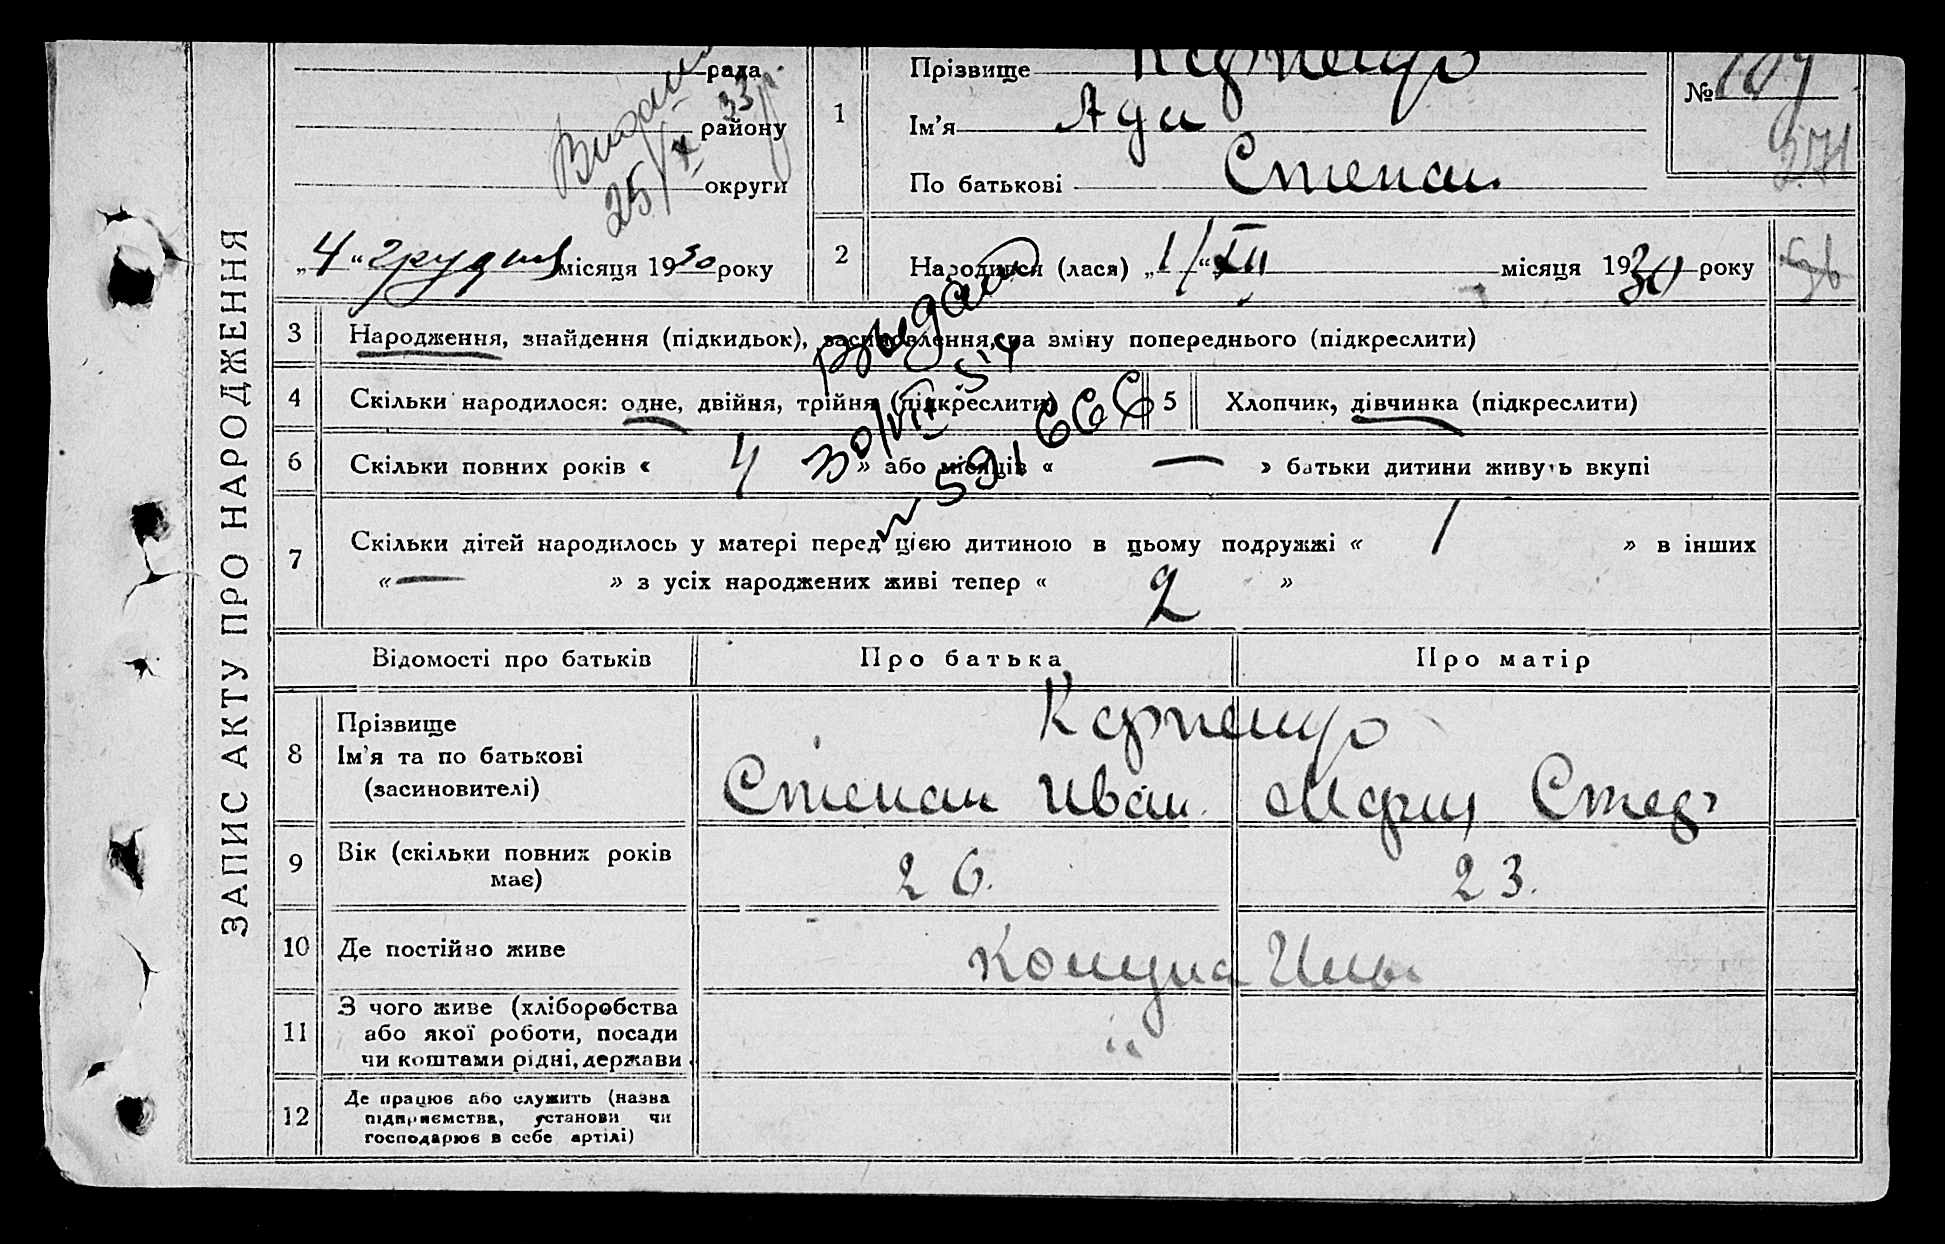 ЗАПИС АКТУ ПРО НАРОДЖЕННЯ
рада
району
округи
25/X 33 р
„4“ грудня місяця 1930 року
1
Прізвище
Ім'я Ада
По батькові Степан.
№
2
Народився (лася) „1/“ XII місяця 1930 року
3 Народження, знайдення (підкидьок), засиновлення, на зміну попереднього (підкреслити)
Выдан
30/VII 54
591666
4 Скільки народилося: одне, двійня, трійня (підкреслити)
5 Хлопчик, дівчинка (підкреслити)
6 Скільки повних років « 4 » або місяців « — » батьки дитини живуть вкупі
7 Скільки дітей народилось у матері перед цією дитиною в цьому подружжі « 1 » в інших
« — » з усіх народжених живі тепер « 2 »
Відомості про батьків
Про батька
Про матір
8 Прізвище
Ім'я та по батькові
(засиновителі)
Степан Иван.
Мария
9 Вік (скільки повних років
має)
26.
23.
10 Де постійно живе
11 З чого живе (хліборобства
або якої роботи, посади
чи коштами рідні, держави
"
12 Де працює або служить (назва
підприємства, установи чи
господарює в себе артілі)